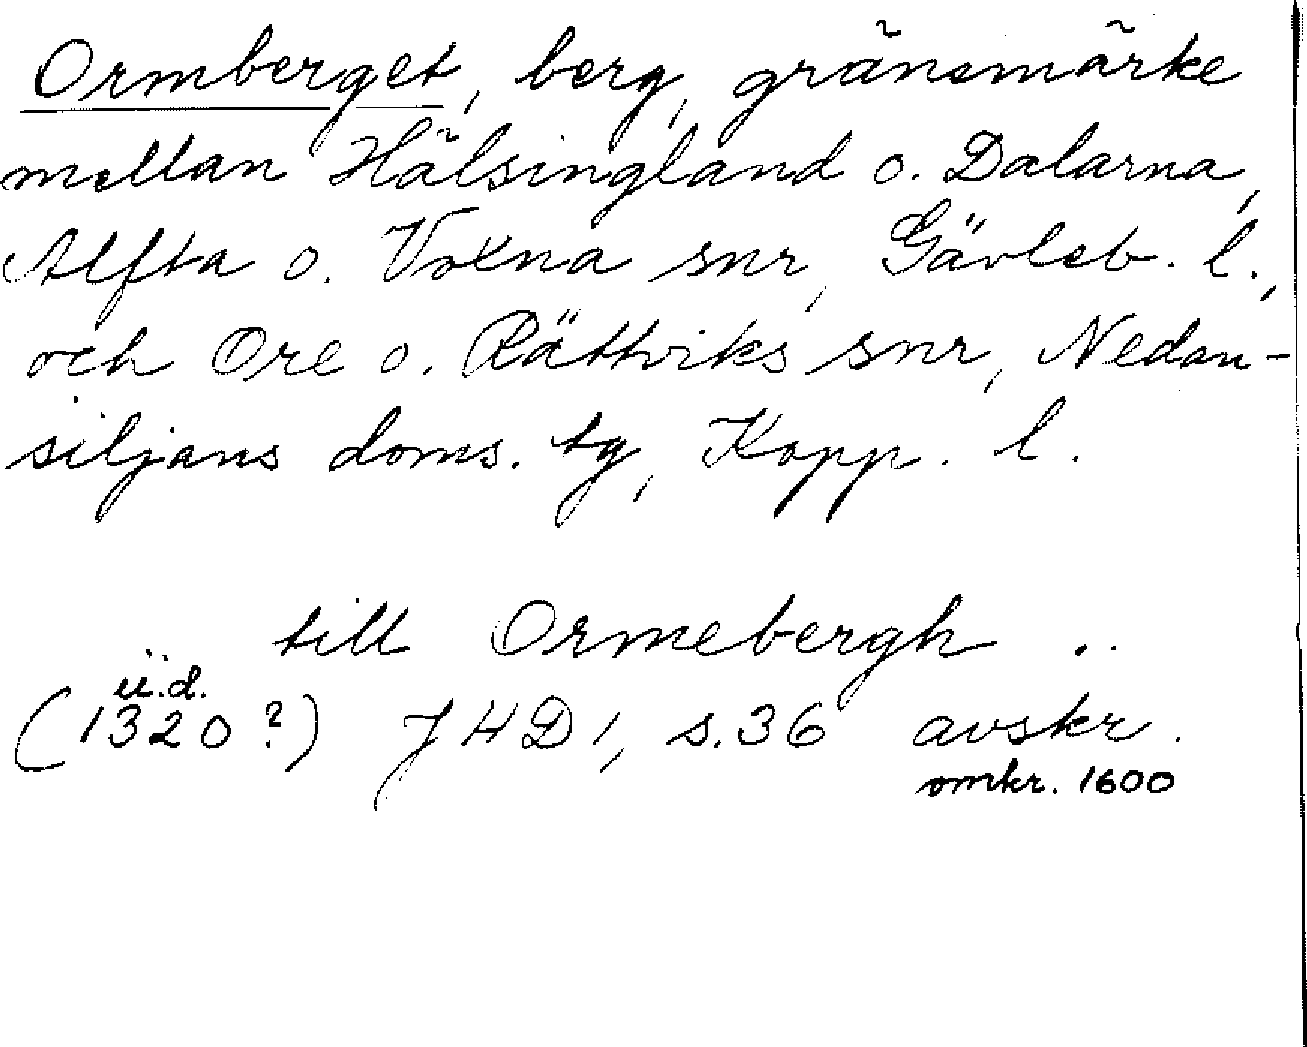 Ormberget, berg, gränsmärke
mellan Hälsingland o. Dalarna,
Alfta o. Voxna snr, Gävleb. l.,
och Ore o. Rättviks snr, Nedan-
siljans doms. tg, Kopp. l.
till Ormebergh ..
u.d.
(1320?) JHD 1, s. 36 avskr.
omkr. 1600